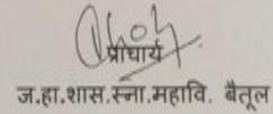 प्राचार्य
ज.हा.शास.स्ना.महावि. बैतूल